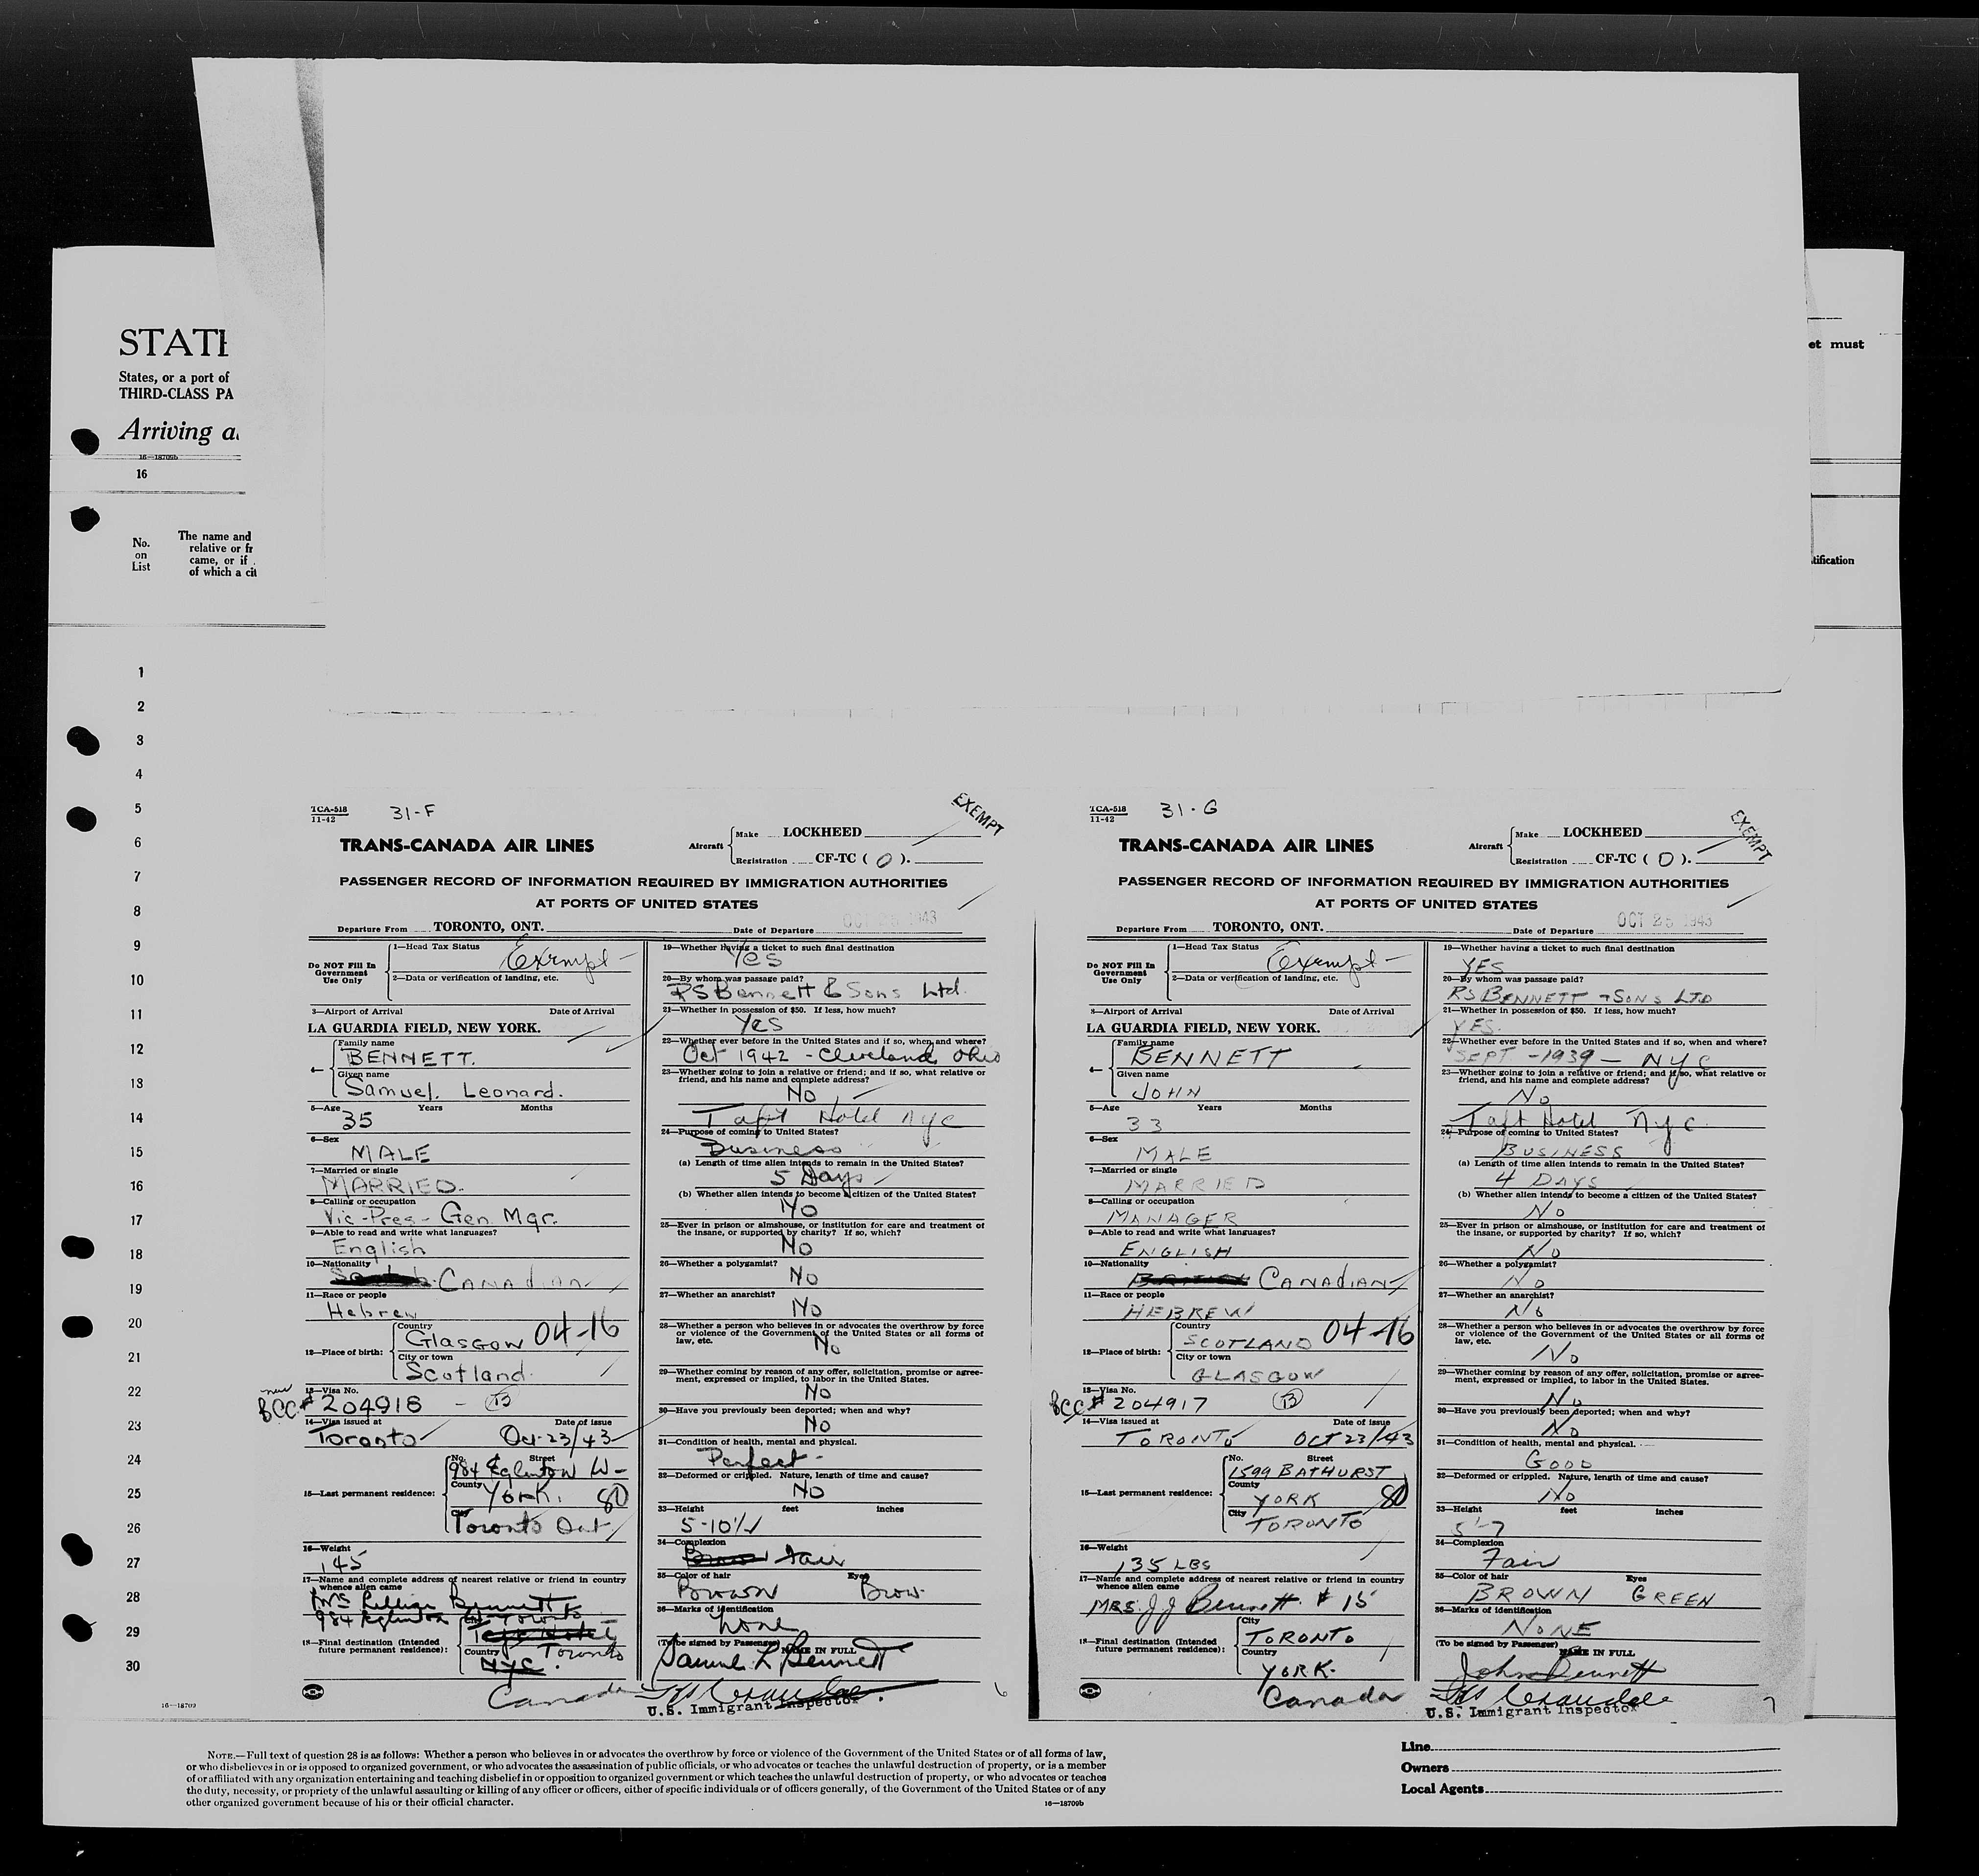 STATE
States, or a port of
THIRD-CLASS PA
Arriving a
16—18709b
16
No.
on
List
The name and
relative or fr
came, or if
of which a cit
et must
tification
1
2
3
4
5
6
7
8
9
10
11
12
13
14
15
16
17
18
19
20
21
22
23
24
25
26
27
28
29
30
16—18709
TCA-518
11-42
31-F
EXEMPT
TRANS-CANADA AIR LINES
Aircraft
Make LOCKHEED
Registration CF-TC ( O ).
PASSENGER RECORD OF INFORMATION REQUIRED BY IMMIGRATION AUTHORITIES
AT PORTS OF UNITED STATES
Departure From TORONTO, ONT. Date of Departure OCT 25 1943
Do NOT Fill In
Government
Use Only
1—Head Tax Status
Exempt
2—Data or verification of landing, etc.
3—Airport of Arrival Date of Arrival
LA GUARDIA FIELD, NEW YORK.
4—
Family name
BENNETT.
Given name
Samuel Leonard.
5—Age Years Months
35
6—Sex
MALE
7—Married or single
MARRIED.
8—Calling or occupation
Vic-Pres- Gen. Mgr.
9—Able to read and write what languages?
English
10—Nationality
CANAdian
11—Race or people
Hebrew
12—Place of birth:
Country
Glasgow 04-16
City or town
Scotland.
13—Visa No.
new
BCC # 204918 - B
14—Visa issued at Date of issue
Toronto Oct-23/43
15—Last permanent residence:
No. Street
984 Eglinton W-
County
York. 80
City
Toronto Ont.
16—Weight
145
17—Name and complete address of nearest relative or friend in country
whence alien came
Mrs Lillian Bennett
984 Eglinton W Toronto
18—Final destination (Intended
future permanent residence):
City
Taft Hotel
Country Toronto
NYC.
Canada
19—Whether having a ticket to such final destination
Yes
20—By whom was passage paid?
RS Bennett & Sons Ltd.
21—Whether in possession of $50. If less, how much?
Yes
22—Whether ever before in the United States and if so, when and where?
Oct 1942 - Cleveland Ohio
23—Whether going to join a relative or friend; and if so, what relative or
friend, and his name and complete address?
No
Taft Hotel nyc
24—Purpose of coming to United States?
Business
(a) Length of time alien intends to remain in the United States?
5 Days
(b) Whether alien intends to become a citizen of the United States?
No
25—Ever in prison or almshouse, or institution for care and treatment of
the insane, or supported by charity? If so, which?
No
26—Whether a polygamist?
No
27—Whether an anarchist?
No
28—Whether a person who believes in or advocates the overthrow by force
or violence of the Government of the United States or all forms of
law, etc.
No
29—Whether coming by reason of any offer, solicitation, promise or agree-
ment, expressed or implied, to labor in the United States.
No
30—Have you previously been deported; when and why?
No
31—Condition of health, mental and physical.
Perfect-
32—Deformed or crippled. Nature, length of time and cause?
No
33—Height feet inches
5-10½
34—Complexion
Brown fair
35—Color of hair Eyes
Brown Brow-
36—Marks of identification
None
(To be signed by Passenger) NAME IN FULL
Samuel L Bennett
U.S. Immigrant Inspector
6
TCA-518
11-42
31-G
EXEMPT
TRANS-CANADA AIR LINES
Aircraft
Make LOCKHEED
Registration CF-TC ( O ).
PASSENGER RECORD OF INFORMATION REQUIRED BY IMMIGRATION AUTHORITIES
AT PORTS OF UNITED STATES
Departure From TORONTO, ONT. Date of Departure OCT 25 1943
Do NOT Fill In
Government
Use Only
1—Head Tax Status
Exempt
2—Data or verification of landing, etc.
3—Airport of Arrival Date of Arrival
LA GUARDIA FIELD, NEW YORK.
4—
Family name
BENNETT
Given name
JOHN
5—Age Years Months
33
6—Sex
MALE
7—Married or single
MARRIED
8—Calling or occupation
MANAGER
9—Able to read and write what languages?
ENGLISH
10—Nationality
British CANADIAN
11—Race or people
HEBREW
12—Place of birth:
Country
SCOTLAND 04-16
City or town
GLASGOW
13—Visa No.
BCC # 204917 B
14—Visa issued at Date of issue
TORONTO OCT 23/43
15—Last permanent residence:
No. Street
1599 BATHURST
County
YORK 80
City
TORONTO
16—Weight
135 LBS
17—Name and complete address of nearest relative or friend in country
whence alien came
MRS. JJ Bennett # 15
18—Final destination (Intended
future permanent residence):
City
TORONTO
Country
YORK.
Canada
19—Whether having a ticket to such final destination
YES
20—By whom was passage paid?
RS BENNETT + SONS LTD
21—Whether in possession of $50. If less, how much?
YES.
22—Whether ever before in the United States and if so, when and where?
SEPT - 1939 - NYC
23—Whether going to join a relative or friend; and if so, what relative or
friend, and his name and complete address?
No
Taft Hotel Nyc
24—Purpose of coming to United States?
BUSINESS
(a) Length of time alien intends to remain in the United States?
4 DAYS
(b) Whether alien intends to become a citizen of the United States?
No
25—Ever in prison or almshouse, or institution for care and treatment of
the insane, or supported by charity? If so, which?
No
26—Whether a polygamist?
No
27—Whether an anarchist?
No
28—Whether a person who believes in or advocates the overthrow by force
or violence of the Government of the United States or all forms of
law, etc.
No
29—Whether coming by reason of any offer, solicitation, promise or agree-
ment, expressed or implied, to labor in the United States.
No
30—Have you previously been deported; when and why?
No
31—Condition of health, mental and physical.
GOOD
32—Deformed or crippled. Nature, length of time and cause?
No
33—Height feet inches
5'-7
34—Complexion
Fair
35—Color of hair Eyes
BROWN GREEN
36—Marks of identification
NONE
(To be signed by Passenger) NAME IN FULL
John Bennett
U.S. Immigrant Inspector
7
NOTE.—Full text of question 28 is as follows: Whether a person who believes in or advocates the overthrow by force or violence of the Government of the United States or of all forms of law,
or who disbelieves in or is opposed to organized government, or who advocates the assassination of public officials, or who advocates or teaches the unlawful destruction of property, or is a member
of or affiliated with any organization entertaining and teaching disbelief in or opposition to organized government or which teaches the unlawful destruction of property, or who advocates or teaches
the duty, necessity, or propriety of the unlawful assaulting or killing of any officer or officers, either of specific individuals or of officers generally, of the Government of the United States or of any
other organized government because of his or their official character.
16—18709b
Line
Owners
Local Agents